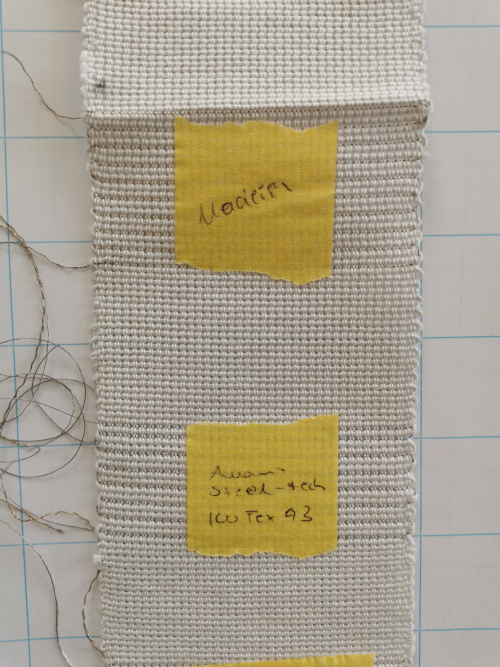 Madeira
Amann
Steel-tech
100 Tex 93